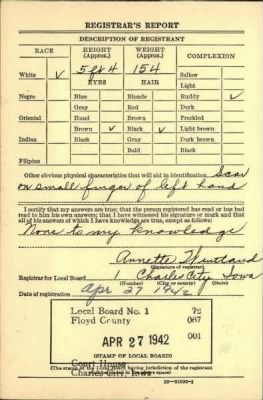 REGISTRAR'S REPORT
DESCRIPTION OF REGISTRANT
RACE HEIGHT (Approx.) WEIGHT (Approx.) COMPLEXION
White ✓ 5 ft 4 154 Sallow
EYES HAIR Light
Negro Blue Blonde Ruddy ✓
Gray Red Dark
Oriental Hazel Brown Freckled
Brown ✓ Black ✓ Light brown
Indian Black Gray Dark brown
Bald Black
Filipino
Other obvious physical characteristics that will aid in identification Scar
on small finger of left hand
I certify that my answers are true; that the person registered has read or has had
read to him his own answers; that I have witnessed his signature or mark and that
all of his answers of which I have knowledge are true, except as follows:
None to my knowledge
Annette
(Signature of registrar)
Registrar for Local Board 1 Charles City Iowa
(Number) (City or county) (State)
Date of registration Apr 27 1942
Local Board No. 1 72
Floyd County 067
APR 27 1942 001
(STAMP OF LOCAL BOARD)
Court House
(The stamp of the Local Board having jurisdiction of the registrant
Charles City, Iowa